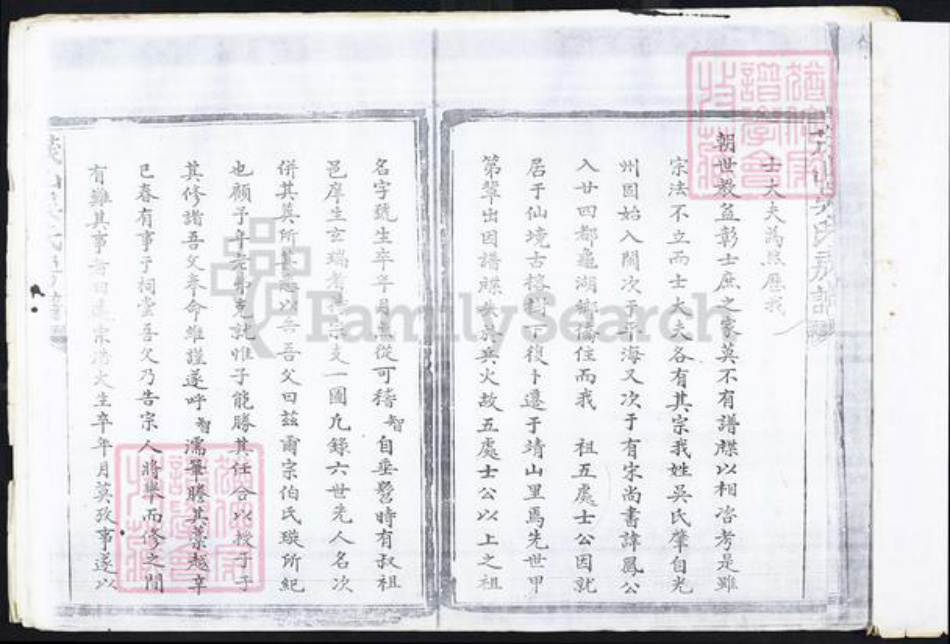 士大夫為然歷我
朝世教益彰士庶之家莫不有譜牒以相咨考是雖
宗法不立而士大夫各有其宗我姓吳氏肇自光
州固始入閩次于海又次于有宋尚書諱鳳公
入廿四都龜湖鄉僑住而我 祖五處士公因就
居于仙境古榕樹下復卜遷于靖山里焉先世甲
第輩出因譜牒失於兵火故五處士公以上之祖
名字號生卒年月無從可稽智自垂髫時有叔祖
邑庠生玄瑞考 宗支一圖凡錄六世先人名次
併其墓所 以告吾父曰茲爾宗伯氏璇所紀
也顧予年老弗克就惟子能勝其任合以授于子
其修諸吾父奉命維謹遂呼智濡筆謄其藁越辛
巳春有事于祠堂吾父乃告宗人將舉而修之間
有難其事者曰 宗浩大生卒年月莫攷事遂以
吳氏族譜
FamilySearch